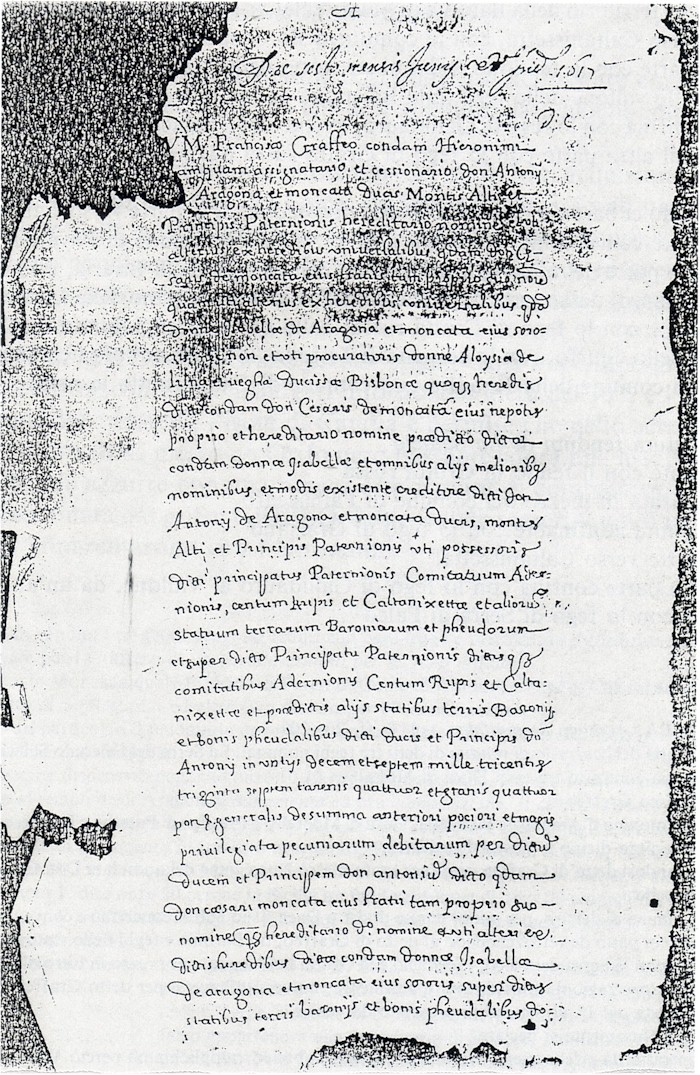 Die sesto mensis Junij 1615
M. Francisco Graffeo condam Hieronimi
tamquam assignatario, et cessionario don Antony
Aragona et moncata Ducis Montis Alti et
Principis Paternionis hereditario nomine
alterius ex heredibus universalibus qdam don
moncata eius fratris
alterius ex heredibus universalibus qdam
Donne Isabellæ de Aragona et moncata eius soro=
ris nec non et oti procuratoris donne Aloysiæ de
luna et vegha Ducissæ Bisbonæ quoqz heredis
dicti condam don Cesaris de moncata eius nepotis
proprio et hereditario nomine prædicto dictæ
condam donnæ Isabellæ et omnibus alijs melioribus
nominibus, et modis existente creditore dicti don
Antonij de Aragona et moncata ducis, montis
Alti et Principis Paternionis uti possessoris
dicti principatus Paternionis Comitatuum Ader=
nionis, centum Rupis et Caltonixettæ et aliorum
statuum terrarum Baroniarum et pheudorum
et super dicto Principatu Paternionis dictisqz
comitatibus Adernionis Centum Rupis et Calta=
nixettæ et prædictis alijs statibus terris Baronijs
et bonis pheudalibus dicti ducis et Principis don
Antonij in untijs decem et septem mille tricentis
triginta septem tarenis quattuor et granis quattuor
pond. generalis de summa anteriori pociori et magis
privilegiata pecuniarum debitarum per dictum
ducem et Principem don antonium dicto qdam
don Cesari moncata eius fratri tam proprio suo
nomine qz hereditario do nomine et uti alteri ex
dictis heredibus dictæ condam donnæ Isabellæ
de aragona et moncata eius sororis super dictis
statibus terris baronijs et bonis pheudalibus do=